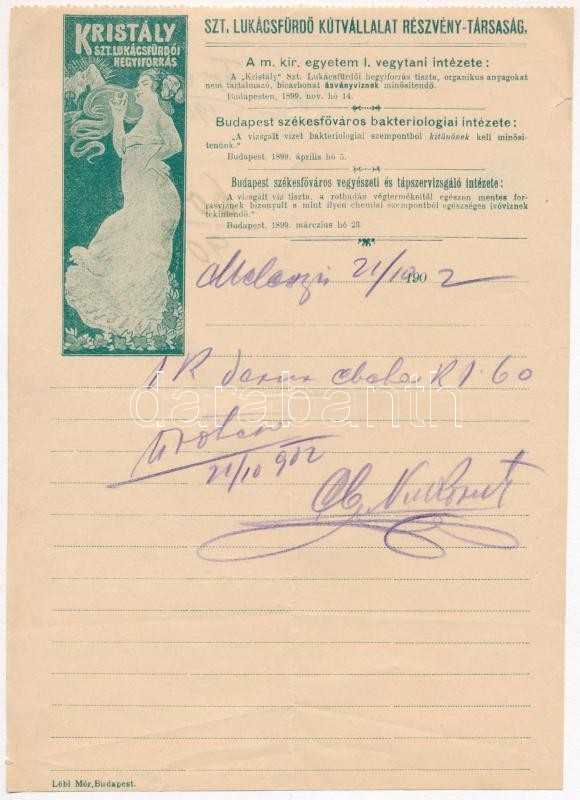 KRISTÁLY
SZT. LUKÁCSFÜRDŐI
HEGYIFORRÁS
SZT. LUKÁCSFÜRDŐ KÚTVÁLLALAT RÉSZVÉNY-TÁRSASÁG.
A m. kir. egyetem I. vegytani intézete:
A „Kristály" Szt. Lukácsfürdői hegyiforrás tiszta, organikus anyagokat
nem tartalmazó, bicarbonat ásványviznek minősitendő.
Budapesten, 1899. nov. hó 14.
Budapest székesfőváros bakteriologiai intézete:
„A vizsgált vizet bakteriologiai szempontból kitünőnek kell minősi-
tenünk."
Budapest, 1899. április hó 5.
Budapest székesfőváros vegyészeti és tápszervizsgáló intézete:
„A vizsgált viz tiszta, a rothadás végtermékeitől egészen mentes for-
rásviznek bizonyult s mint ilyen chemiai szempontból egészséges ivóviznek
tekintendő."
Budapest, 1899. márczius hó 23.
21/10 1902
1 K 1·60
darabanth
21/10 902
Löbl Mór, Budapest.